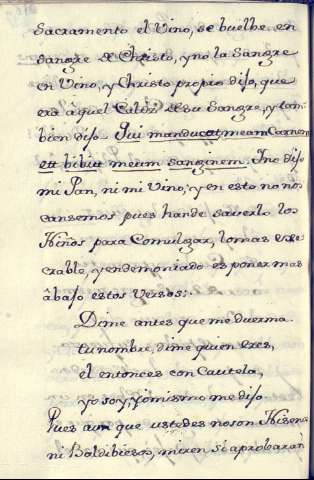 Sacramento el Vino, se buelbe en
sangre de Christo, y no la Sangre
en Vino, y Christo propio dijo, que
era àquel Caliz de su Sangre, y tam-
bien dijo. Qui manducat meam Carnem
et bibit meum sanginem. Y no dijo
mi Pan, ni mi Vino; y en esto no nos
cansemos pues han de saverlo los
Niños para Comulgar, lo mas exe-
crable, y endemoniado es poner mas
àbajo estos Versos:
Dime antes que me duerma
tu nombre, dime quien eres,
el entonces con Cautela,
yo soy, yo mismo me dijo
Pues aun que ustedes no son
ni miren si aprobaràn